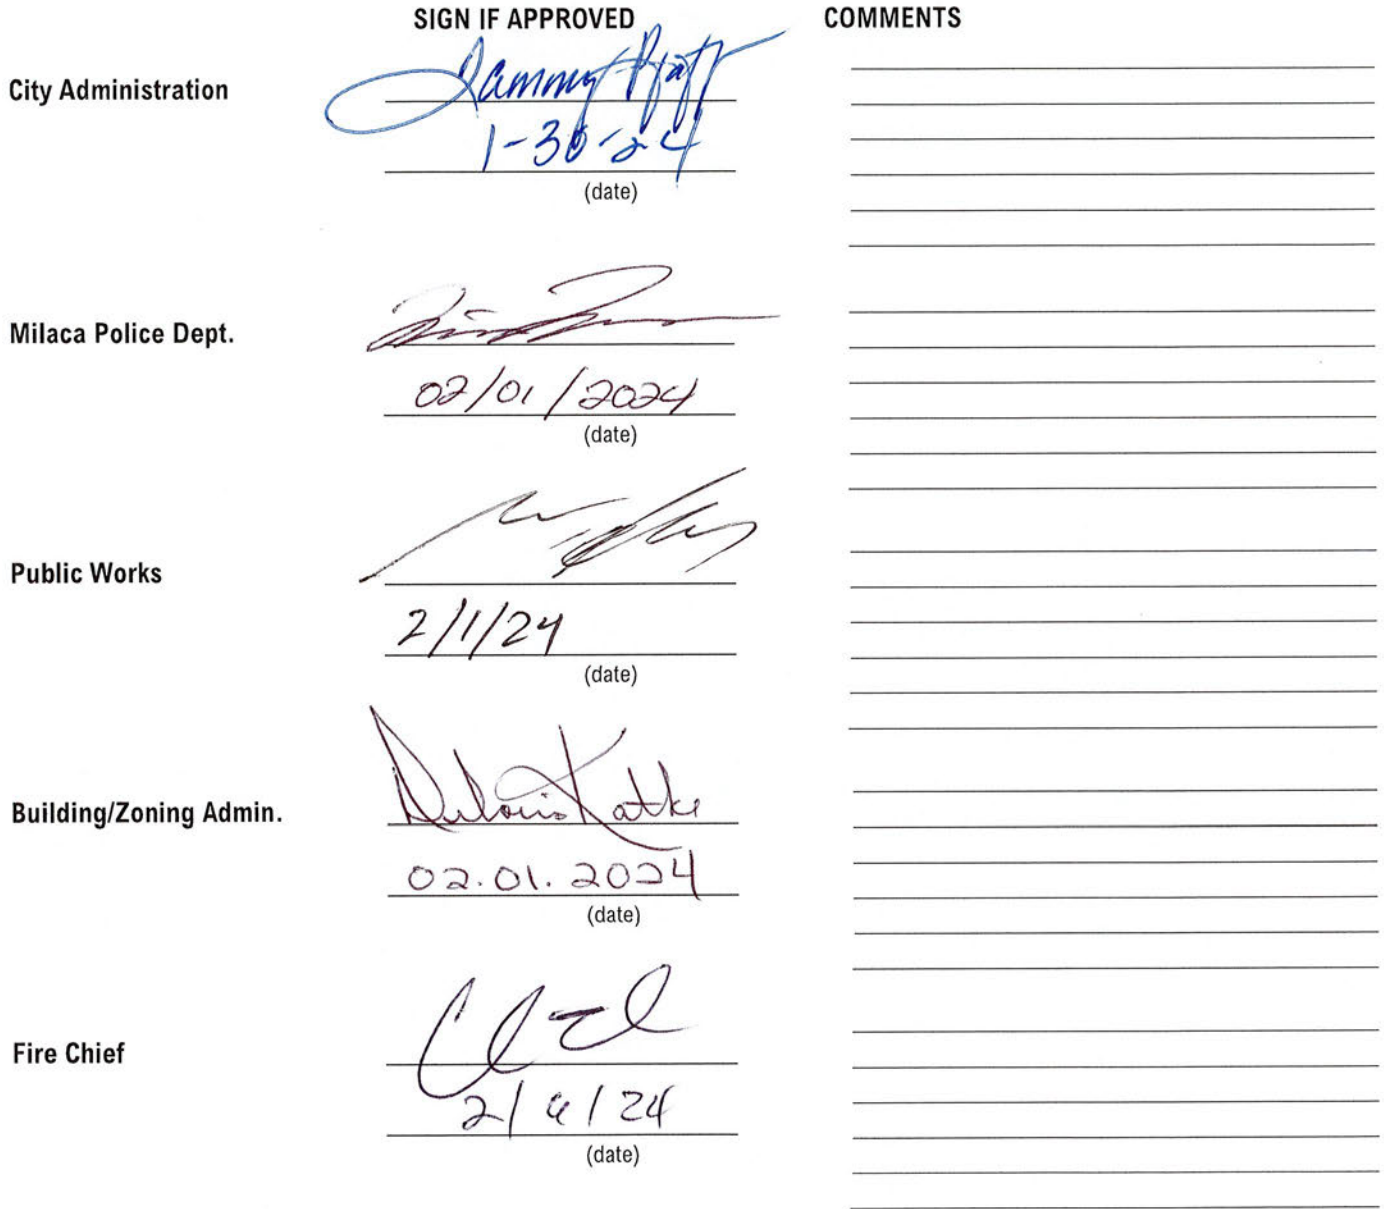 SIGN IF APPROVED COMMENTS
City Administration Tammy Pfaff
1-30-24
(date)
Milaca Police Dept.
02/01/2024
(date)
Public Works
2/1/24
(date)
Building/Zoning Admin. Deloris Katke
02.01.2024
(date)
Fire Chief
2/6/24
(date)